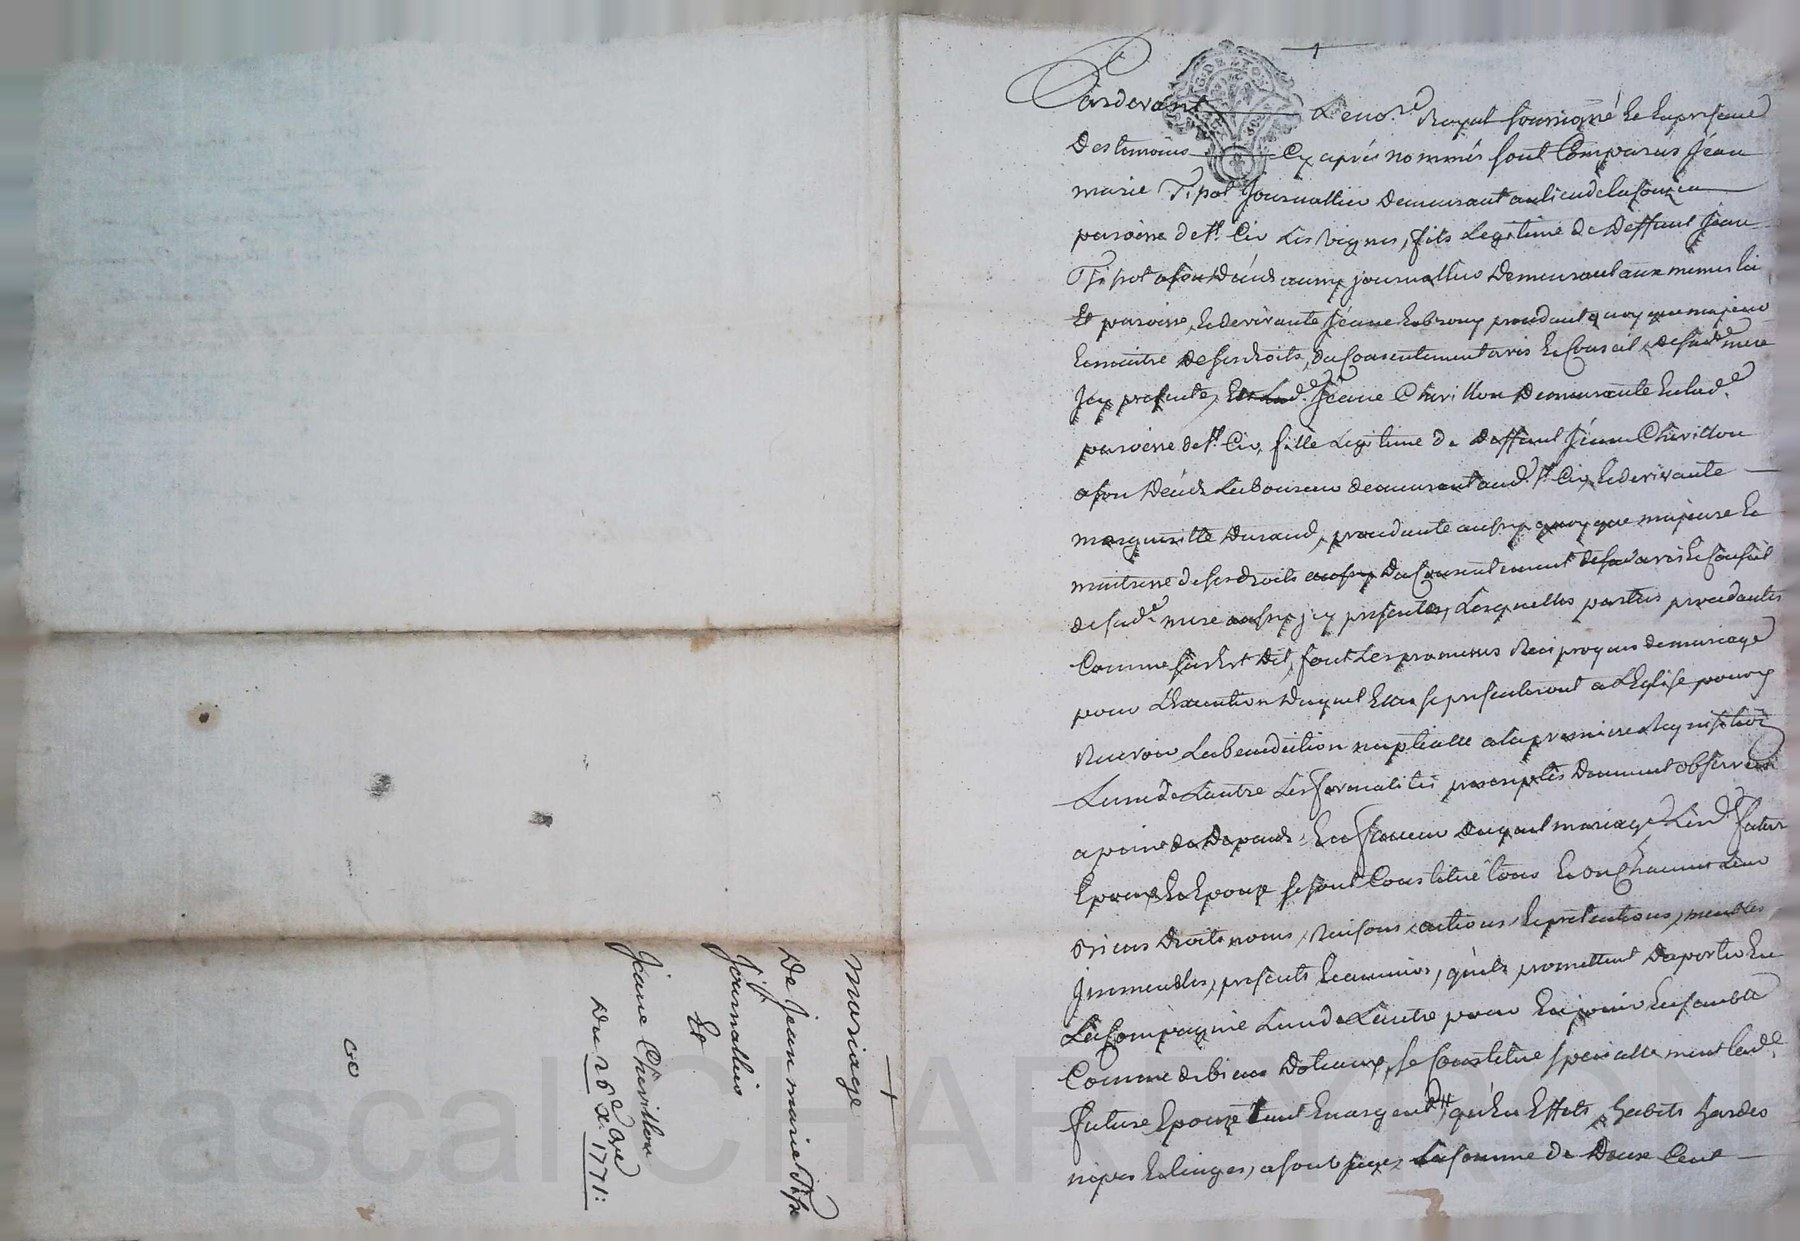 Pardevant Le no.re Royal soussigné Et En presence
Des temoins Cy aprés nommés sont Comparus Jean
marie Tipot Journallier Demeurant au lieu de la
paroisse de St. Cir Les vignes, fils Legitime De Deffunt Jean
Tipot a son Décéds aussy journallier Demeurant aux memes lieu
Et paroisse, Et de vivante Jeanne procedant quoy que majeur
Et maitre De ses droits, du Consentement avis Et Conseil de sad.e mere
Jcy presente, Et Lad.e Jeane Chevillon Demeurante En lad.e
paroisse de St. Cir, fille Legitime De Deffunt Jean Chevillon
a son Décéds Laboureur demeurant aud. St. Cir, Et de vivante
margueritte Durand, procedante aussy quoy que majeure Et
maitresse de ses droits aussy Du Consentement de sa avis Et Conseil
de sad.e mere aussy jcy presente, Lesquelles parties procedantes
Comme sus Est Dit, font Les promesses Reciproques de mariage
pour L'Execution Duquel Elles se presenteront a L'Eglise pour y
Recevoir La benediction nuptialle a la premiere Requisition
L'un de L'autre Les formalités prescriptes Duement observées
a peine de Depends. En faveur Duquel mariage Lesd. futurs
Epoux Et Epouse se sont Constitué tous Et un Chacuns Leur
Biens Droits noms, Raisons, actions, Et prétentions, meubles
Jmmeubles, presents Et avenirs, qu'ils promettent D'aporter En
La Compagnie L'un de L'autre pour En jouir Ensemble
Comme de biens Dotaux, se Constitue specialle ment lad.e
future Epouse tant En argent qu'En Effets, habits hardes
nipes Et linges, a sont La somme De Deux Cent
mariage
De Jean marie Tipot
Journallier
Et
Jeane Chevillon
Du 26e Xbre 1771:
GO
Pascal CHAREYRON